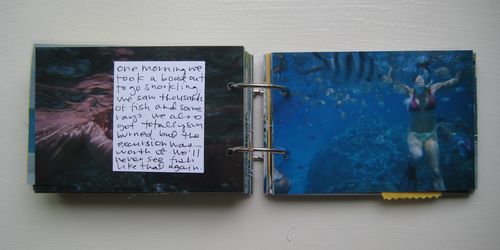 one morning we
took a boat out
to go snorkling.
we saw thousands
of fish and some
rays. we also
got totally sun
burned but the
excursion was
worth it. we'll
never see fish
like that again.